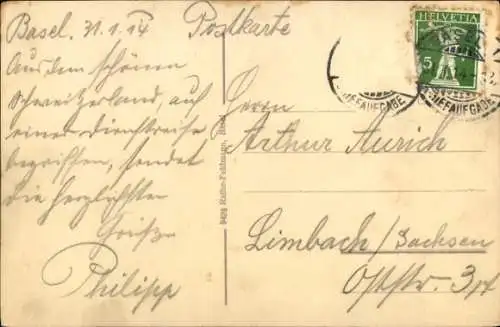 Basel. 31.1.14
Postkarte
HELVETIA
5
BRIEFAUFGABE
BRIEFAUFGABE
Aus dem schönen
Schweizerland, auf
einer Dienstreise
begriffen, sendet
die herzlichsten
Grüße
Philipp
Herrn
Arthur Aurich
Limbach/Sachsen
Oststr. 3